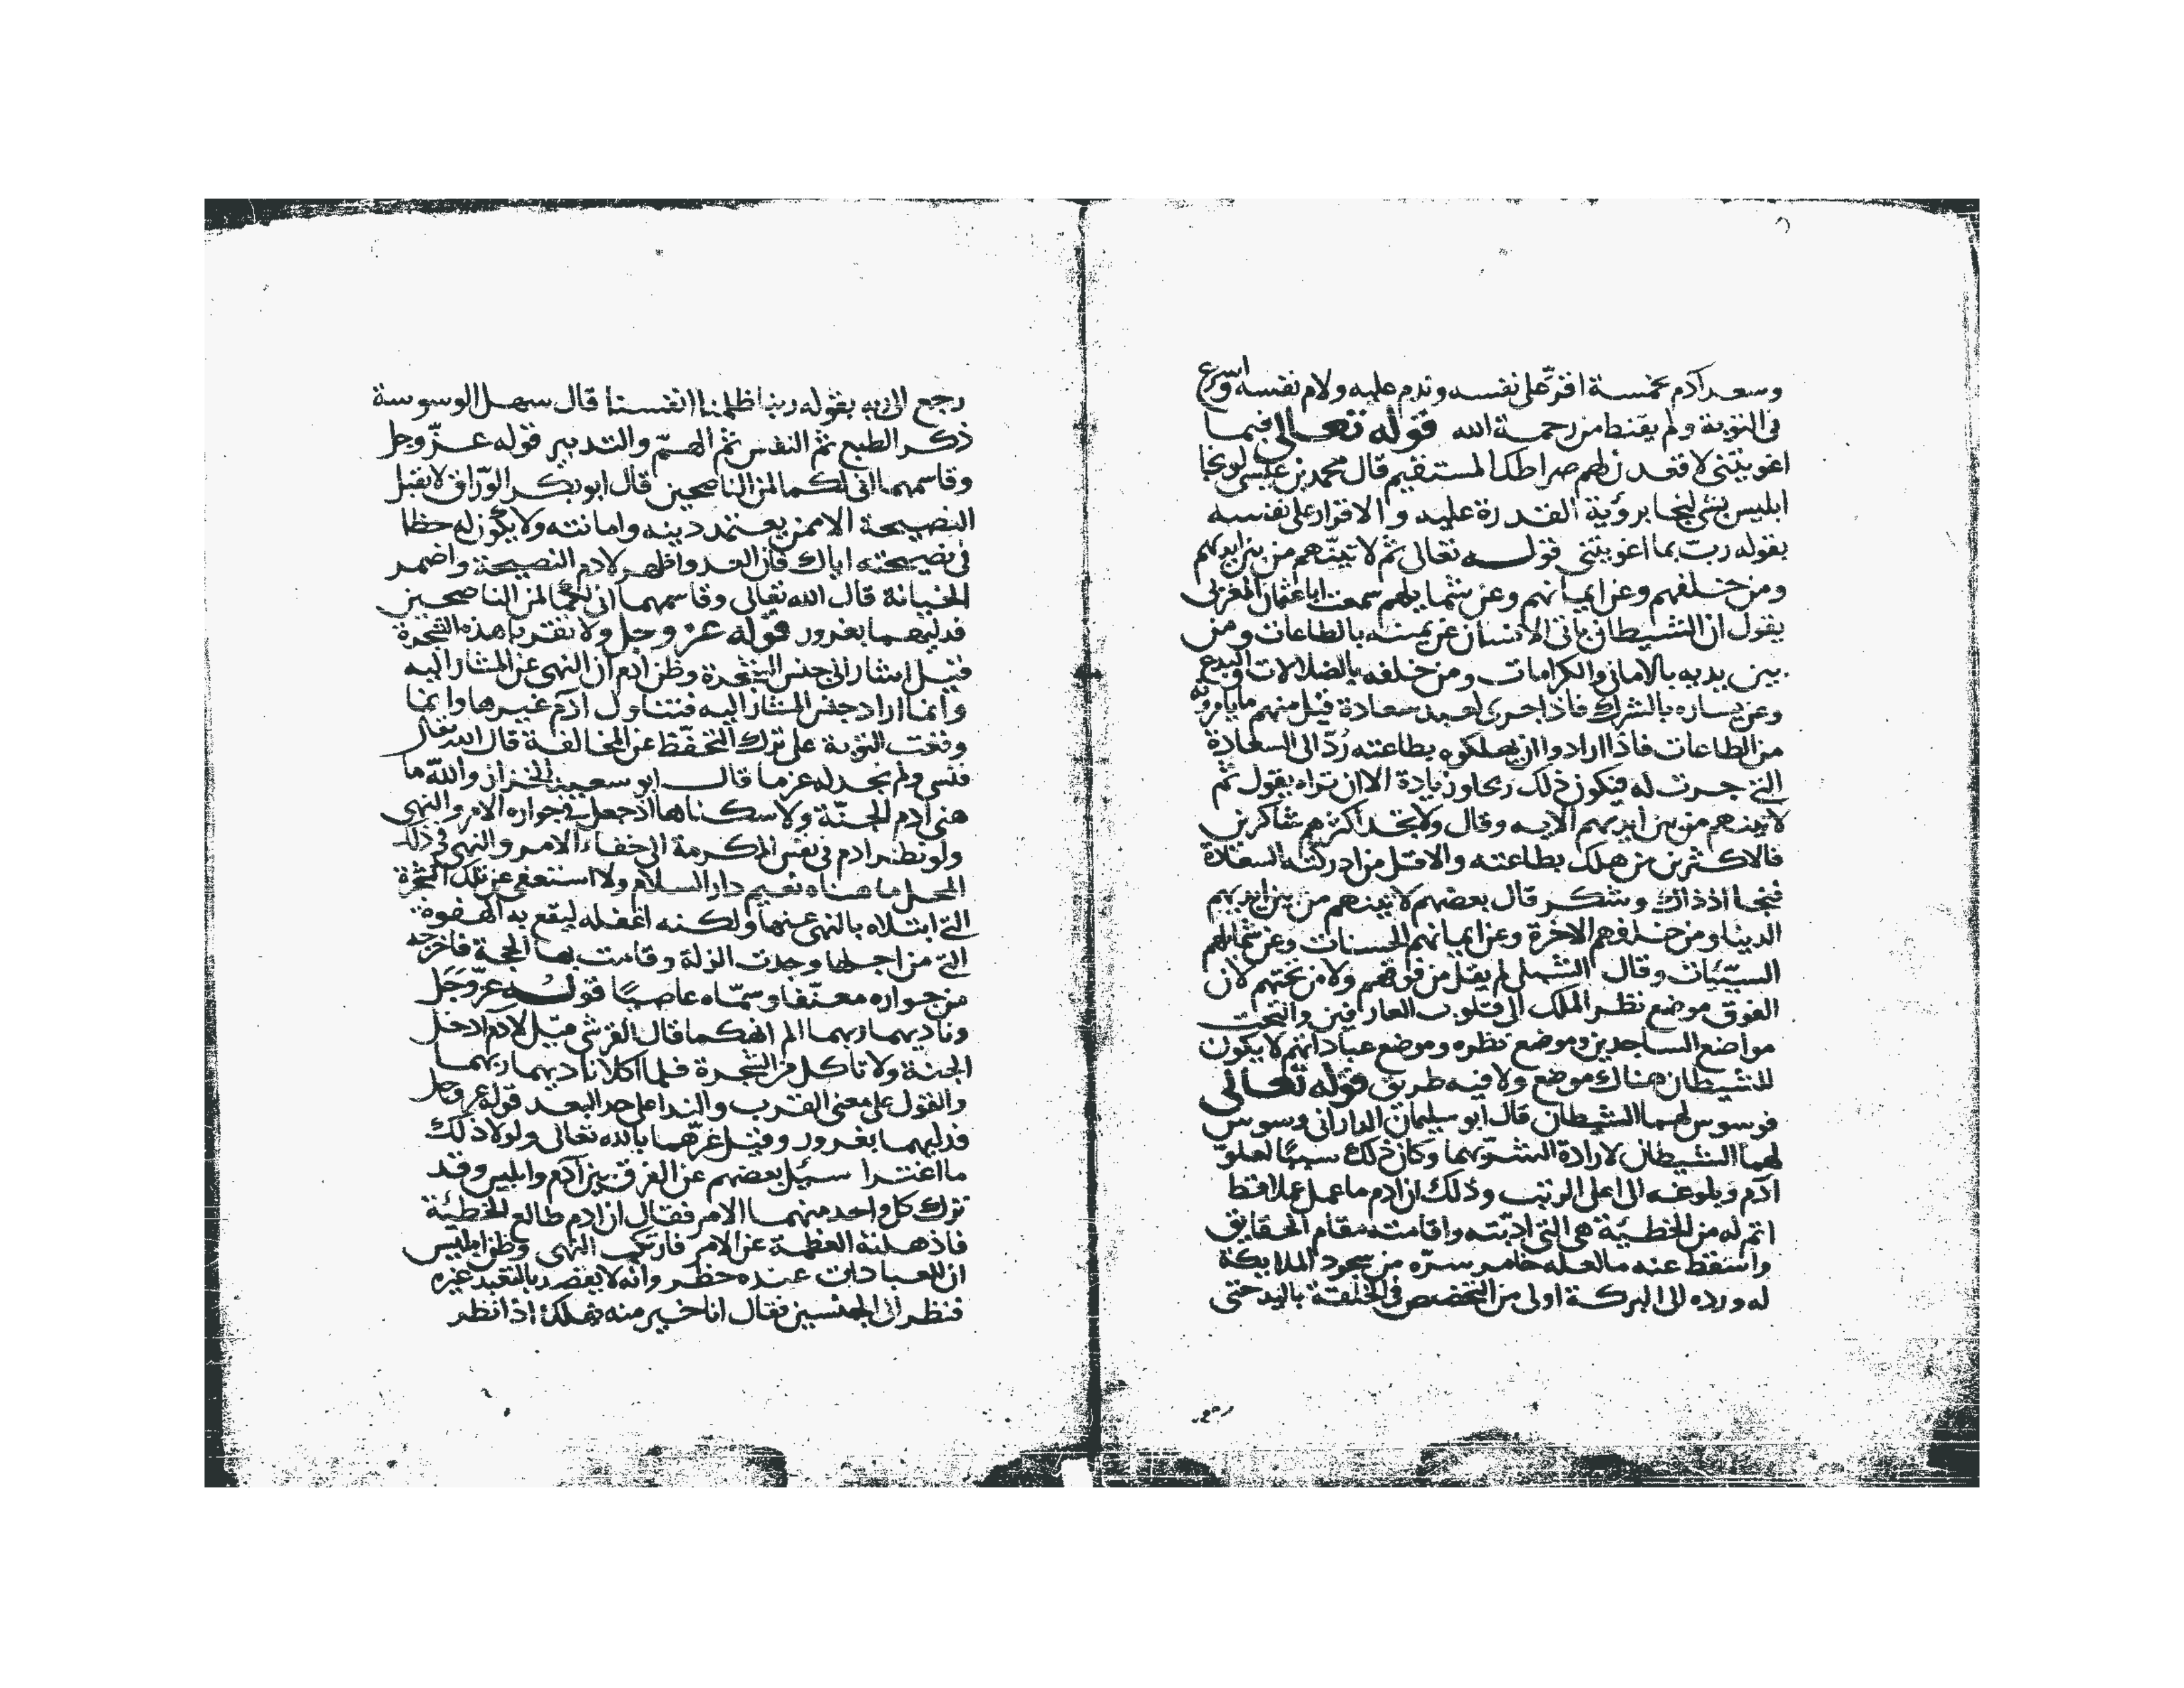 وسعد آدم بخمسة اقرّ على نفسه وندم عليه ولام نفسه واسرع
فى التوبة ولم يقنط من رحمة الله قوله تعالى فبما
اغويتنى لاقعدن لهم صراطك المستقيم قال محمد بن عيسى لو نجا
ابليس بشى لنجا برؤية القدرة عليه والاقرار على نفسه
بقوله ربّ بما اغويتنى قوله تعالى ثم لاتينّهم من بين ايديهم
ومن خلفهم وعن ايمانهم وعن شمايلهم سمعت اباعثمان المغربى
يقول ان الشيطان ياتى الانسان عن يمينه بالطاعات ومن
بين يديه بالامانى والكرامات ومن خلفه بالضلالات والبدع
وعن يساره بالشرك فاذا جرى لعبد سعادة قيل منهم ما يامرونه
من الطاعات فاذا ارادوا ان يهلكوه بطاعته رُدّ الى السعادة
التى جرت له فيكون ذلك زيادة الا ان تراه يقول ثم
لاتينهم من بين ايديهم الايه وقال ولا تجد اكثرهم شاكرين
فالاكثرين من هلك بطاعته والاقل من ادركته السعادة
فنجا اذ ذاك وشكر قال بعضهم لاتينهم من بين ايديهم
الدينا ومن خلفهم الاخرة وعن ايمانهم الحسنات وعن شمالهم
السيّيات وقال الشبلى لم يقل من فوقهم ولا من تحتهم لان
الفوق موضع نظر الملك الى قلوب العارفين والتحت
مواضع الساجدين وموضع نظره وموضع عباداتهم لا يكون
للشيطان هناك موضع ولا فيه طريق قوله تعالى
فوسوس لهما الشيطان قال ابو سليمان الدارانى وسوس
لهما الشيطان لارادة الشر بهما وكان ذلك سببًا لعلوّ
آدم وبلوغه الى اعلى الرتب وذلك ان ادم ما عمل عملا قط
اتم له من الخطيّة هى التى ادبّته واقامته مقام الحقايق
واسقط عنه ما لعله خامر سرّه من سجود الملايكة
له ورده الى البركة اولى من التخصيص فى الخلقة باليد حتى
رجع الى ربه بقوله ربنا ظلمنا انفسنا قال سهل الوسوسة
ذكر الطبع ثم النفس ثم الهمّ والتدبير قوله عزّ وجل
وقاسمهما انى لكما لمن الناصحين قال ابو بكر الورّاق لا تقبل
النصيحة الا ممن يعتمد دينه وامانته ولا يكون له حظا
فى نصيحته اياك فان العدو اظهر لادم النصيحة واضمر
الخيانة قال الله تعالى وقاسمهما انى لكما لمن الناصحين
فدليهما بغرور قوله عز وجل ولا تقربا هذه الشجرة
قيل اشار الى جنس الشجرة وظن ادم ان النهى عن المشار اليه
وانما اراد جنس المشار اليه فتناول آدم غيرها وانما
وقعت التوبة على ترك التحفّظ عن المخالفة قال الله تعالى
فنسى ولم نجد له عزما قال ابو سعيد الخراز والله ما
هنى ادم الجنّة ولا سكناها اذ جعل فى جواره الامر والنهى
ولو نظر ادم فى نفس المكرمة الى خفاء الامر والنهى فى ذلك
المحل ما هناه نعيم دار السلام ولا استعفى عن تلك الشجرة
التى ابتلاه بالنهى عنها ولكنه اغفله ليقع به الهفوة
التى من اجلها وجدت الزلة وقامت بها الحجة فاخرجه
من جواره معنّفا وسمّاه عاصيًا قوله عزّ وجَل
وناديهما ربهما الم انهكما قال القرشى قيل لادم ادخل
الجنة ولا تاكل من الشجرة فلما اكلا ناديهما ربهما
والقول على معنى القرب والندا على حد البعد قوله عز وجل
فدليهما بغرور وقيل غرّهما بالله تعالى ولولا ذلك
ما اغترا سئل بعضهم عن الفرق بين آدم وابليس وقد
ترك كل واحد منهما الامر فقال ان ادم طالع الخطيئة
فاذهلته العظمة عن الامر فارتكب النهى وظن ابليس
ان للعبادات عنده خطر وانّه لا يقصد بالتعبد غيره
فنظر الى الجنسين فقال انا خير منه فهلك اذا نظر